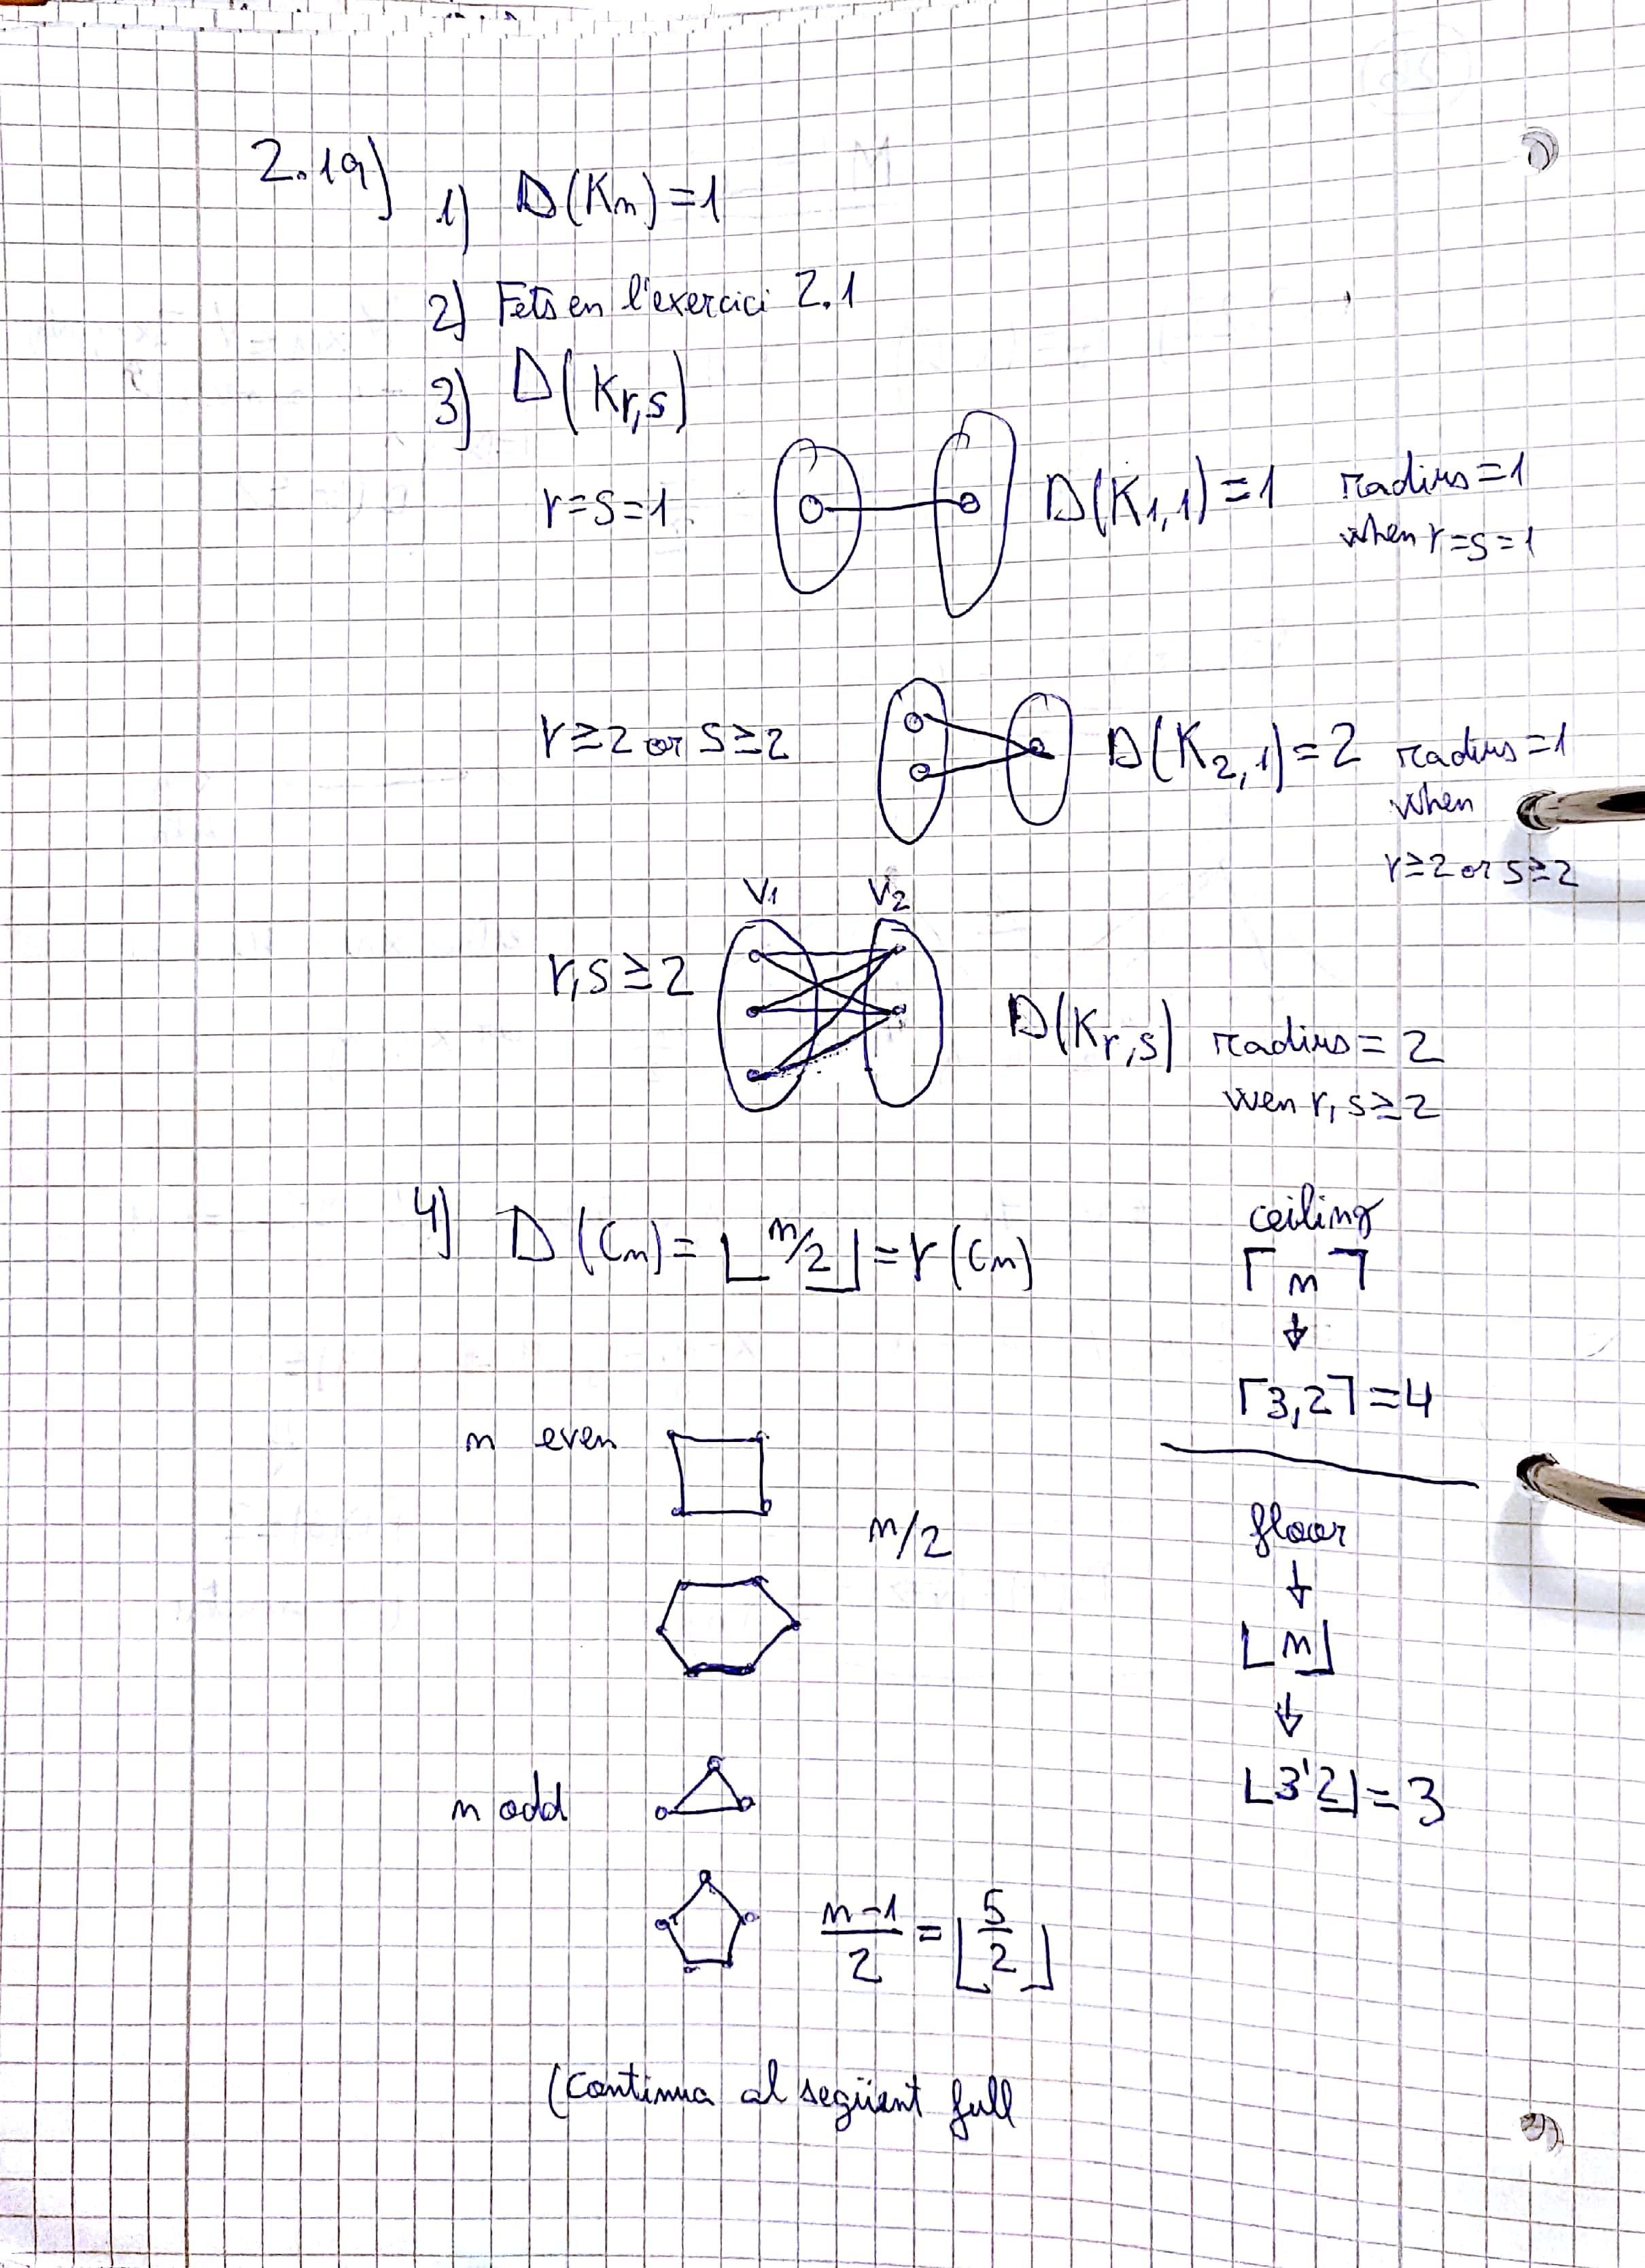 2.19)
1) D(Kn)=1
2) Fets en l'exercici 2.1
3) D(Kr,s)
r=s=1 D(K1,1)=1 radius=1
when r=s=1
r≥2 or s≥2 D(K2,1)=2 radius=1
when
r≥2 or s≥2
V1 V2
r,s≥2 D(Kr,s) radius=2
wen r,s≥2
4) D(Cn)=⌊n/2⌋=r(Cn)
ceiling
⌈n⌉
↓
⌈3,2⌉=4
n even
n/2
floor
↓
⌊n⌋
↓
⌊3'2⌋=3
n odd
n-1/2=⌊5/2⌋
(Continua al següent full